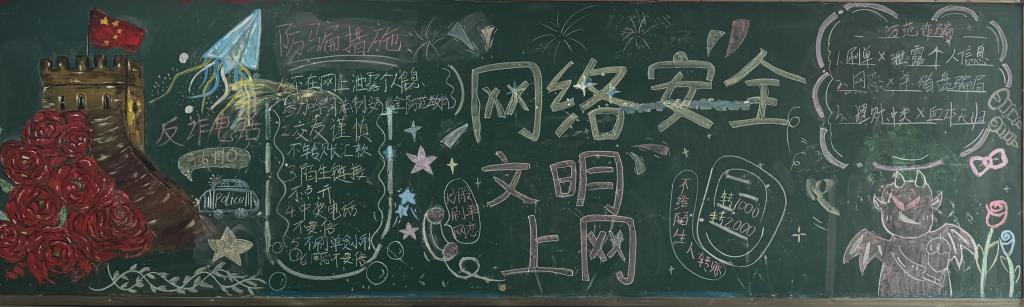 反诈电话
96110
Police
防骗措施:
1.不在网上泄露个人信息
2.交友谨慎
不转账汇款
3.陌生链接
不点开
4.中奖电话
不要信
5.不刷单刷
6.网恋不要信
网络安全
文明
上网
刷单
网恋
不给陌生人转账
转1000
转2000
防范诈骗
1.刷单×泄露个人信息
2.网恋×
3.理财中奖×血本无归